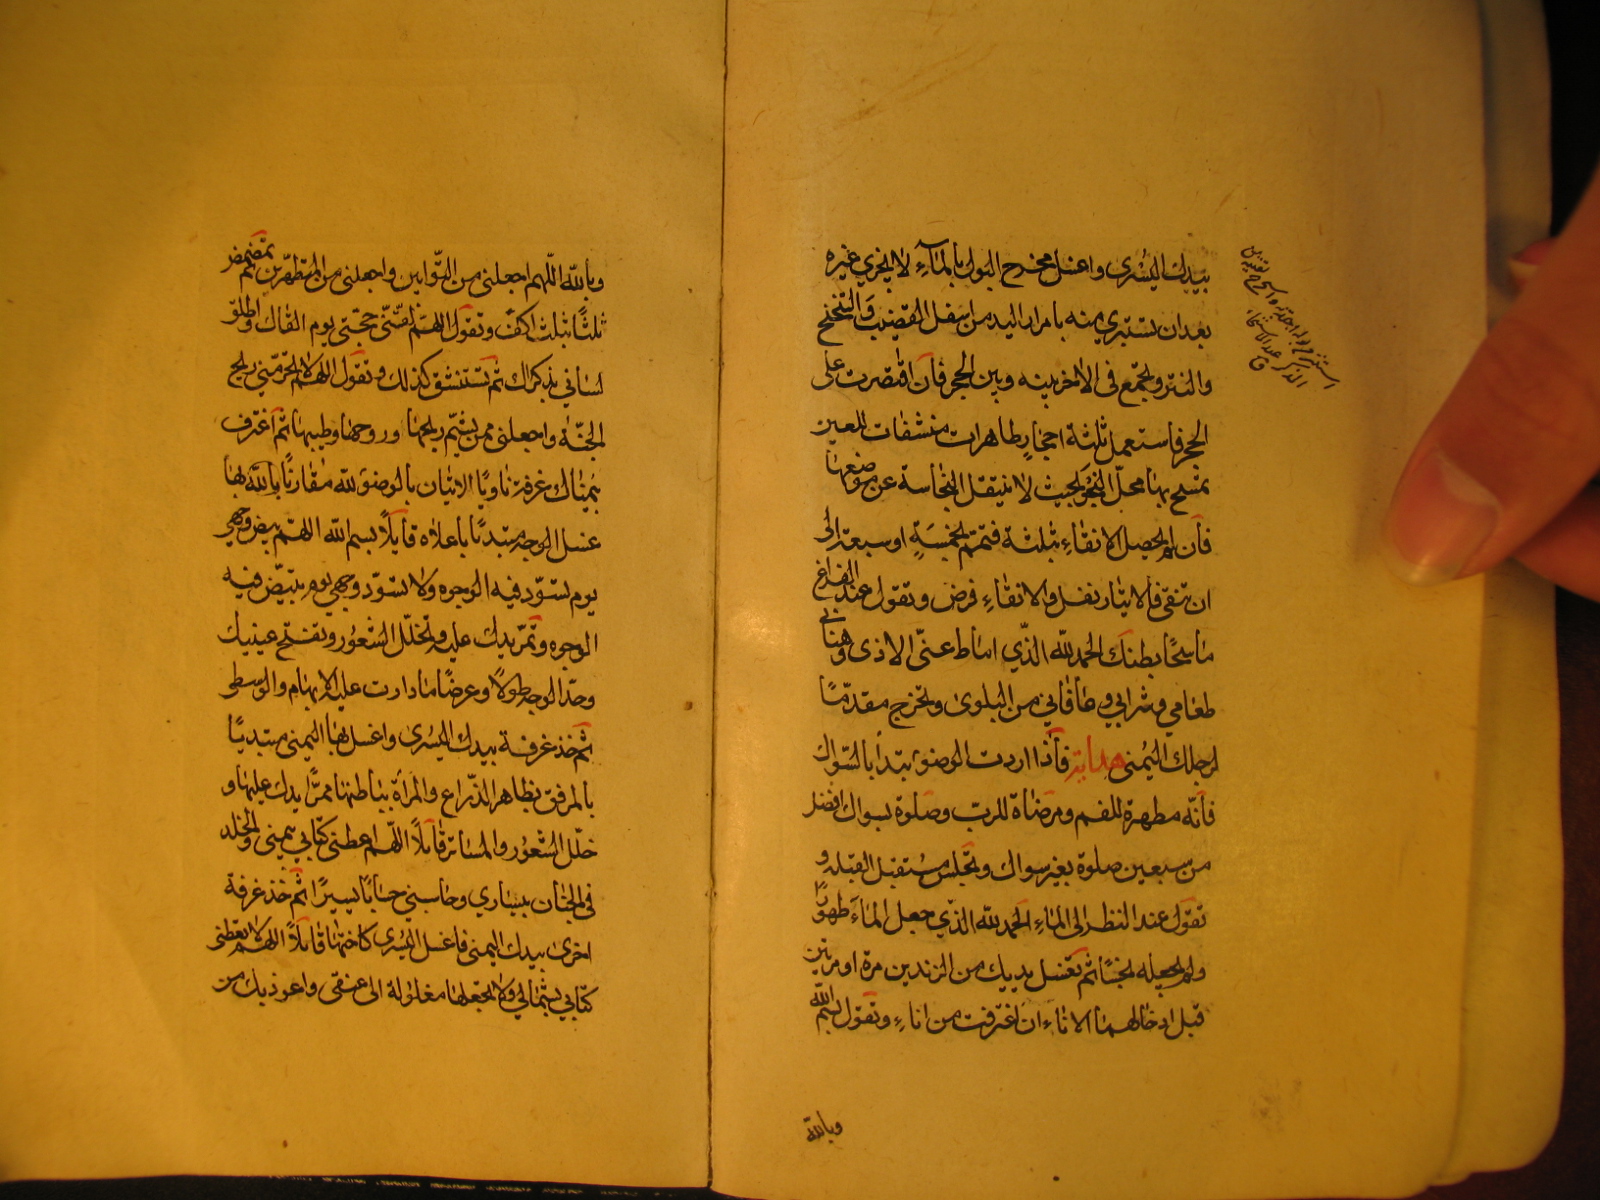 بيدك اليسرى واغسل مخرج البول بالماء لا يجزي غيره
بعد ان تستبرئ منه بامرار اليد من اسفل القضيب والتنحنح
والنتر ويجمع في الاخر بينه وبين الحجر فان اقتصرت على
الحجر فاستعمل ثلثة احجار طاهرات منشفات للعين
تمسح بها محل النجو بحيث لا ينتقل النجاسة عن موضعها
فان لم يحصل الانقاء بثلثة فتمم بخمسة او سبعة الى
ان تنقى فالايتار نفل والانقاء فرض وتقول عند الفراغ
ماسحا بطنك الحمد لله الذي اماط عني الاذى وهناني
طعامي وشرابي وعافاني من البلوى وتخرج مقدما
لرجلك اليمنى هداية فاذا اردت الوضوء تبدأ بالسواك
فانه مطهرة للفم ومرضاة للرب وصلوة بسواك افضل
من سبعين صلوة بغير سواك وتجلس مستقبل القبلة و
تقول عند النظر الى الماء الحمد لله الذي جعل الماء طهورا
ولم يجعله نجسا ثم تغسل يديك من الزندين مرة او مرتين
قبل ادخالهما الاناء ان اغترفت من اناء وتقول بسم الله
وبالله
وبالله اللهم اجعلني من التوابين واجعلني من المتطهرين ثم تمضمض
ثلثا بثلث اكف وتقول اللهم لقني حجتي يوم القاك واطلق
لساني بذكراك ثم تستنشق كذلك وتقول اللهم لا تحرمني ريح
الجنة واجعلني ممن يشم ريحها وروحها وطيبها ثم اغترف
بيمناك غرفة ناويا الاتيان بالوضوء لله مقارنا بالله بها
غسل الوجه مبتدئا باعلاه قايلا بسم الله اللهم بيض وجهي
يوم تسود فيه الوجوه ولا تسود وجهي يوم تبيض فيه
الوجوه وتمر يدك عليه وتخلل الشعور وتفتح عينيك
وحد الوجه طولا وعرضا ما دارت عليه الابهام والوسطى
ثم خذ غرفة بيدك اليسرى واغسل بها اليمنى مبتديا
بالمرفق بظاهر الذراع والمرأة بباطنها ممرا يدك عليها و
خلل الشعور والمساتر قايلا اللهم اعطني كتابي بيميني والخلد
في الجنان بيساري وحاسبني حسابا يسيرا ثم خذ غرفة
اخرى بيدك اليمنى فاغسل اليسرى كاختها قايلا اللهم لا تعطني
كتابي بشمالي ولا تجعلها مغلولة الى عنقي واعوذ بك من